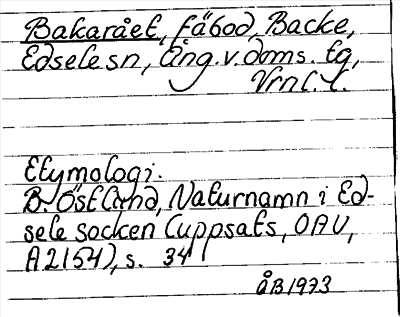 Bakarået, fäbod, Backe,
Edsele sn, Ång.v.doms. tg,
Vrnl. l.
Etymologi.
B. Östlund, Naturnamn i Ed-
sele socken (uppsats, OAU,
A2154), s. 34
ÅB 1973